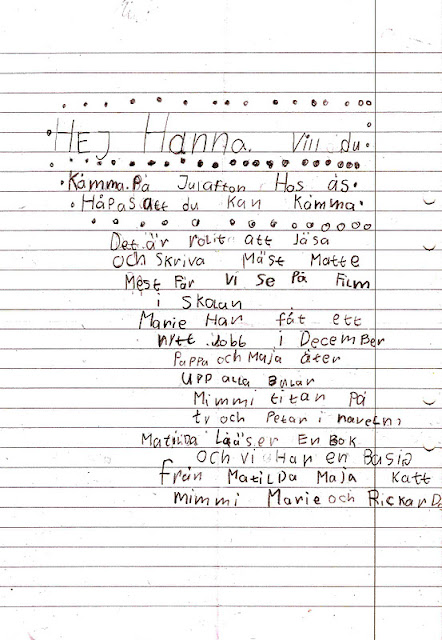 HEJ Hanna. Vill du
Kåmma. På Julafton Hos ås.
Håpas att du kan Kåmma.
Det. är rolit att läsa
och skriva Mäst Matte
Mest Får vi se på Film
i skolan
Marie Han fåt ett
nytt jobb i December
Pappa och Maja äter
upp alla Bular
Mimmi titar på
tv och Petar i naveln,
Matilda Lääser En Bok
och vi Han en Basia
från Matilda Maja Katt
mimmi Marie och Rickard